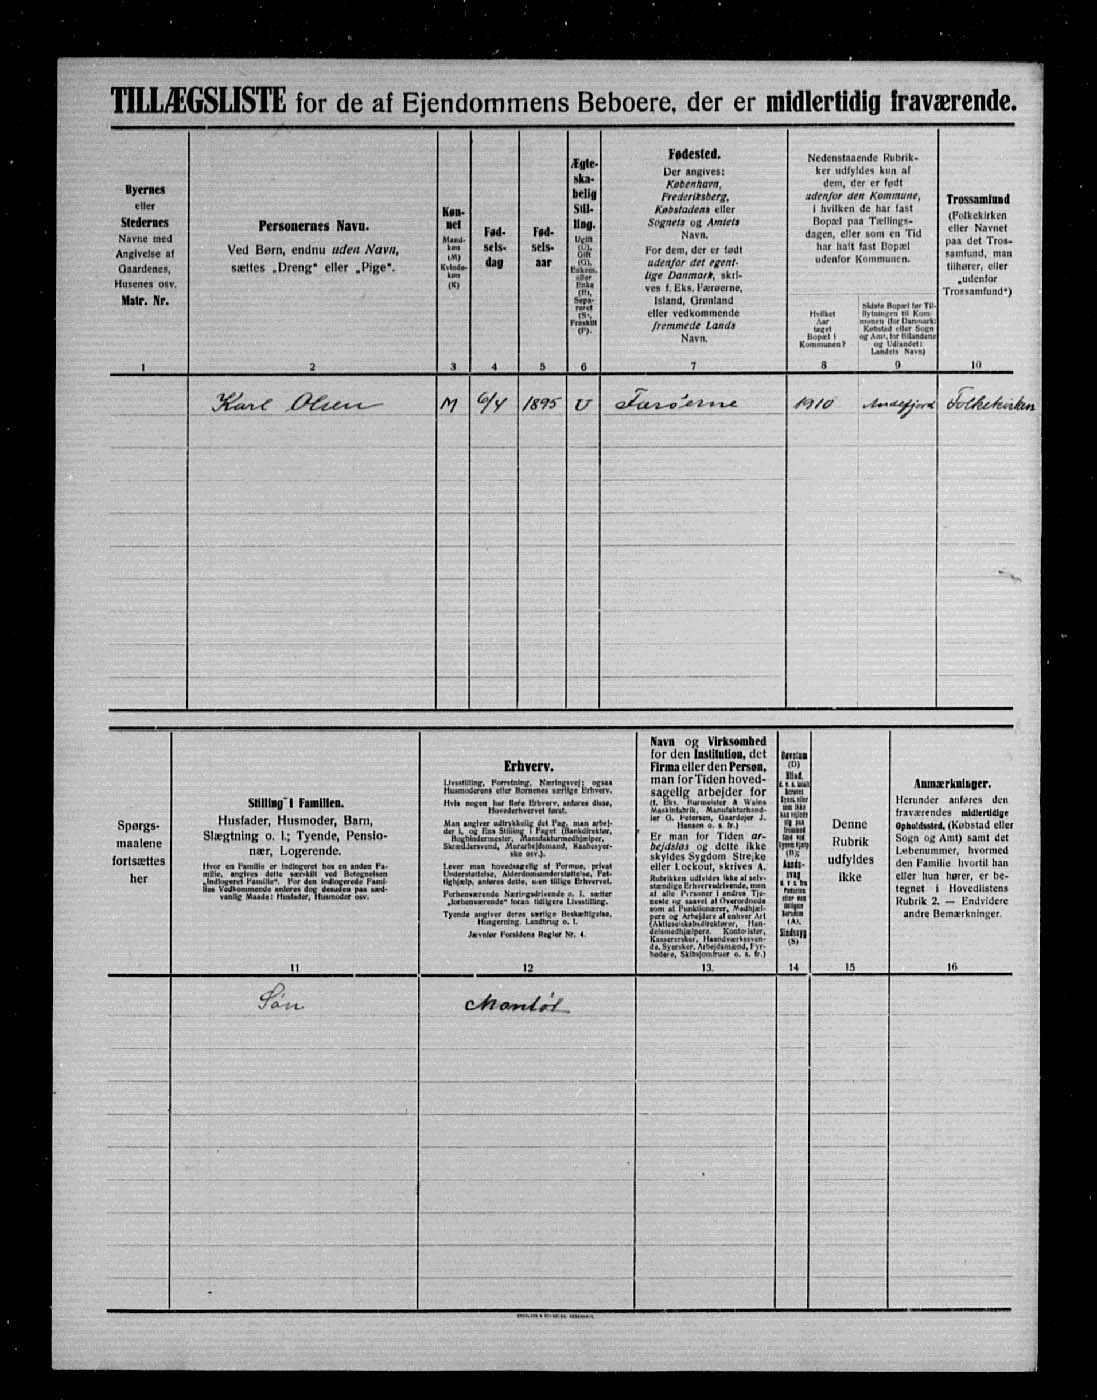 TILLÆGSLISTE for de af Ejendommens Beboere, der er midlertidig fraværende.
Byernes
eller
Stedernes
Navne med
Angivelse af
Gaardenes,
Husenes osv.
Matr. Nr.
1
Personernes Navn.
Ved Børn, endnu uden Navn,
sættes „Dreng“ eller „Pige“.
2
Køn-
net
Mand-
køn
(M)
Kvinde-
køn
(K)
3
Fød-
sels-
dag
4
Fød-
sels-
aar
5
Ægte-
ska-
belig
Stil-
ling.
Ugift
(U),
Gift
(G),
Enkem.
eller
Enke
(E),
Sepa-
reret
(S),
Fraskilt
(F).
6
Fødested.
Der angives:
København,
Frederiksberg,
Købstadens eller
Sognets og Amtets
Navn.
For dem, der er født
udenfor det egent-
lige Danmark, skri-
ves f. Eks. Færøerne,
Island, Grønland
eller vedkommende
fremmede Lands
Navn.
7
Nedenstaaende Rubrik-
ker udfyldes kun af
dem, der er født
udenfor den Kommune,
i hvilken de har fast
Bopæl paa Tællings-
dagen, eller som en Tid
har haft fast Bopæl
udenfor Kommunen.
Hvilket
Aar
taget
Bopæl i
Kommunen?
8
Sidste Bopæl før Til-
flytningen til Kom-
munen (for Danmark:
Købstad eller Sogn
og Amt, for Bilandene
og Udlandet:
Landets Navn)
9
Trossamfund
(Folkekirken
eller Navnet
paa det Tros-
samfund, man
tilhører, eller
„udenfor
Trossamfund“)
10
Karl Olsen M 6/4 1895 U Færøerne 1910 Andefjord Folkekirken
Spørgs-
maalene
fortsættes
her
Stilling i Familien.
Husfader, Husmoder, Barn,
Slægtning o. l.; Tyende, Pensio-
nær, Logerende.
Hvor en Familie er indlogeret hos en anden Fa-
milie, angives dette særskilt ved Betegnelsen
„Indlogeret Familie“. For den indlogerede Fami-
lies Vedkommende anføres dog desuden paa sæd-
vanlig Maade: Husfader, Husmoder osv.
11
Erhverv.
Livsstilling, Forretning, Næringsvej; ogsaa
Husmoderens eller Børnenes særlige Erhverv.
Hvis nogen har flere Erhverv, anføres disse,
Hovederhvervet først.
Man angiver udtrykkelig det Fag, man arbej-
der i, og Ens Stilling i Faget (Bankdirektør,
Bogbindermester, Manufakturmedhjælper,
Skræddersvend, Murarbejdsmand, Kaabesyer-
ske osv.).
Lever man hovedsagelig af Formue, privat
Understøttelse, Alderdomsunderstøttelse, Fat-
tighjælp, anføres dette, uden tillige Erhvervet.
Forhenværende Næringsdrivende o. l. sætter
„forhenværende“ foran tidligere Livsstilling.
Tyende angiver deres særlige Beskæftigelse,
Husgerning, Landbrug o. l.
Jævnfør Forsidens Regler Nr. 4.
12
Navn og Virksomhed
for den Institution, det
Firma eller den Person,
man for Tiden hoved-
sagelig arbejder for
(f. Eks. Burmeister & Wains
Maskinfabrik, Manufakturhand-
ler G. Petersen, Gaardejer J.
Hansen o. s. fr.)
Er man for Tiden ar-
bejdsløs og dette ikke
skyldes Sygdom Strejke
eller Lockout, skrives A.
Rubrikken udfyldes ikke af selv-
stændige Erhvervsdrivende, men
af alle Personer i andres Tje-
neste og saavel af Overordnede
som af Funktionærer, Medhjæl-
pere og Arbejdere af enhver Art
(Aktieselskabsdirektører, Han-
delsmedhjælpere, Kontorister,
Kassererskker, Haandværkssven-
de, Syersker, Arbejdsmænd, Fyr-
bødere, Skibsjomfruer o. s. fr.)
13.
Døvstum
(D)
Blind,
(B);
Aands-
svag
(A),
Sindssyg
(S)
14
Denne
Rubrik
udfyldes
ikke
15
Anmærkninger.
Herunder anføres den
fraværendes midlertidige
Opholdssted, (Købstad eller
Sogn og Amt) samt det
Løbenummer, hvormed
den Familie hvortil han
eller hun hører, er be-
tegnet i Hovedlistens
Rubrik 2. — Endvidere
andre Bemærkninger.
16
Søn